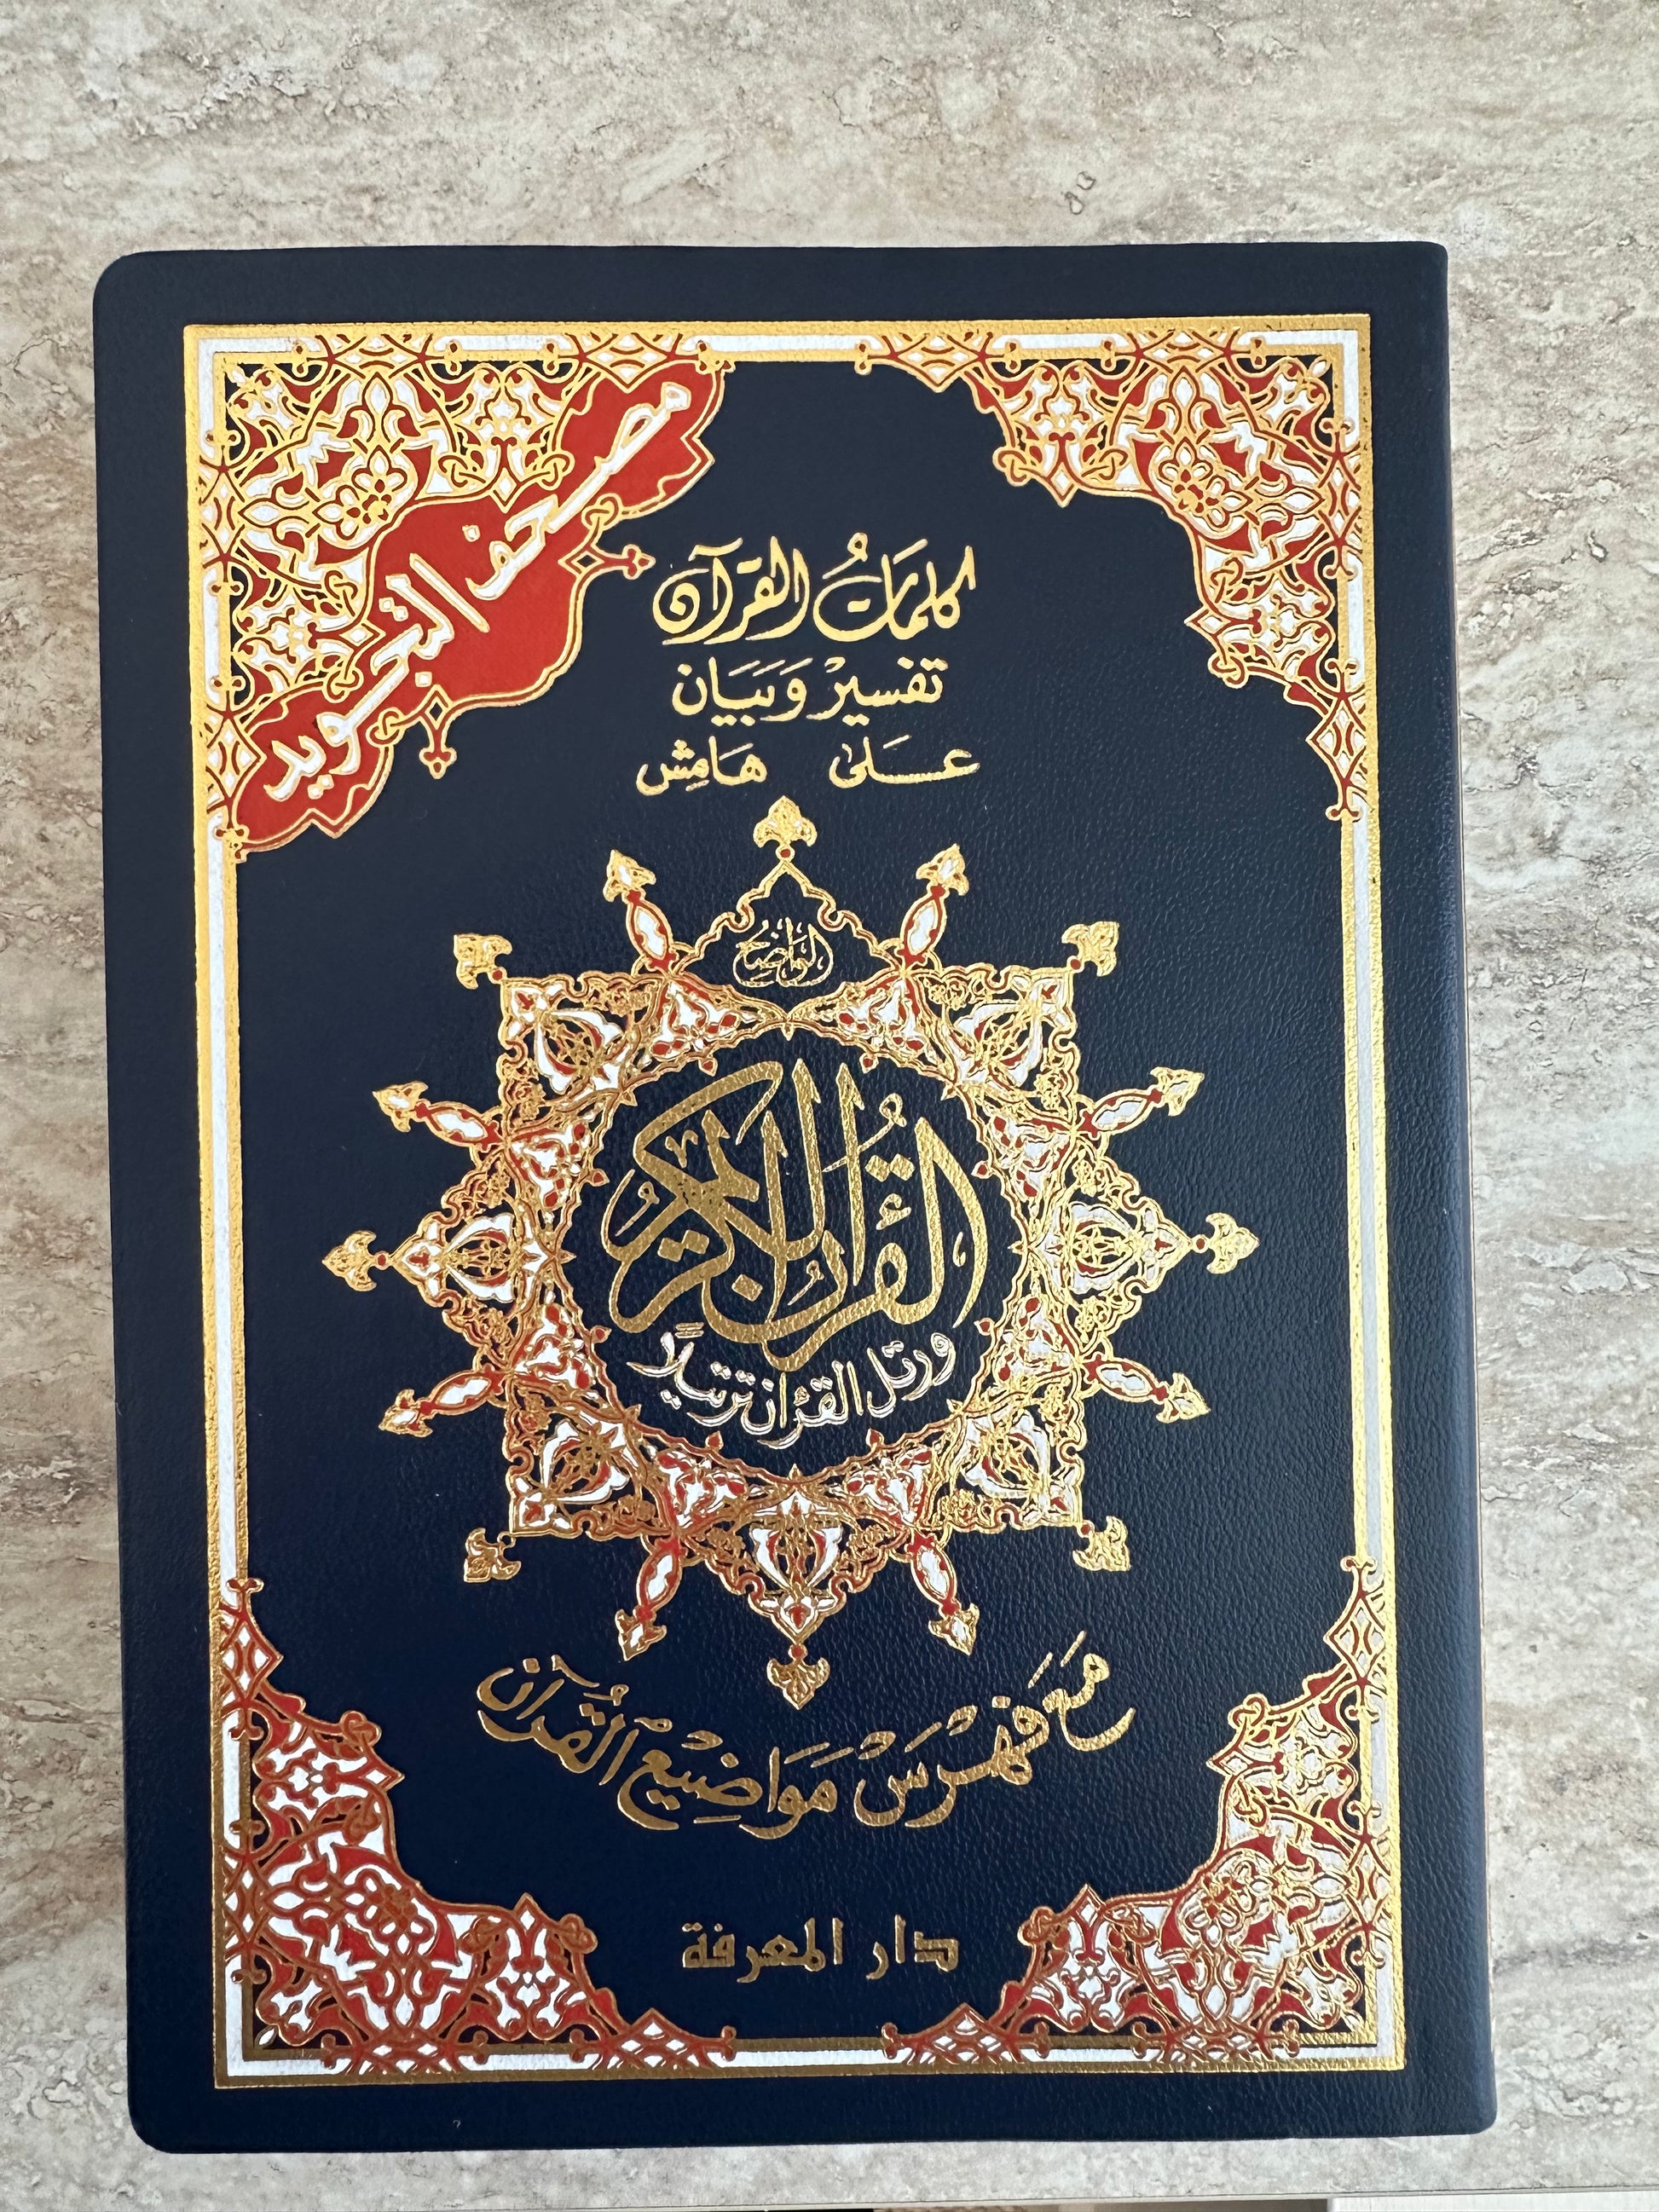 مصحف التجويد
كلِمَاتُ القرآن
تفسِيرْ وَبَيَان
عَلىٰ هَامِش
الوَاضِحُ
القُرْءَانُ الكَرِيمُ
ورتل القرْءَان ترتيلاً
مَع فِهْرسْ مَوَاضِيْعِ القُرآن
دار المعرفة